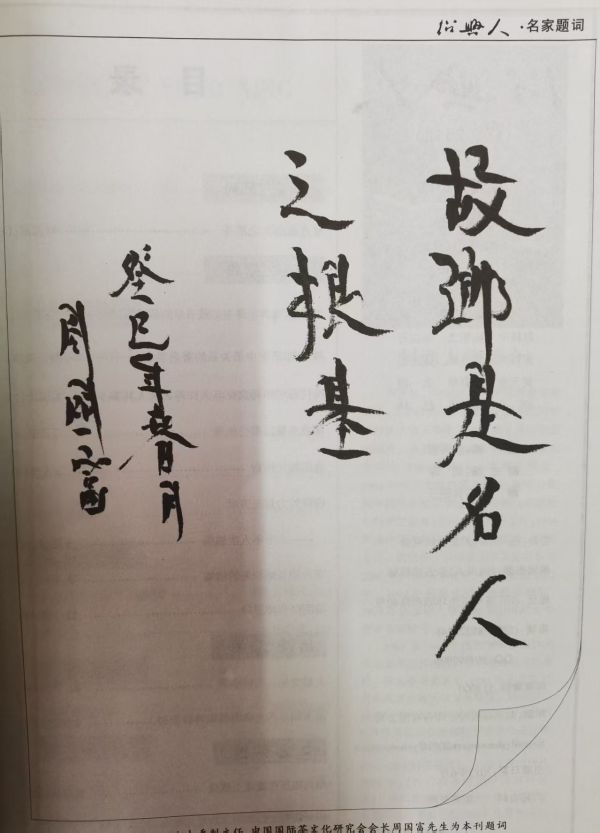 绍兴人·名家题词
故乡是名人
之根基
癸巳年春月
周国富
中国国际茶文化研究会会长周国富先生为本刊题词